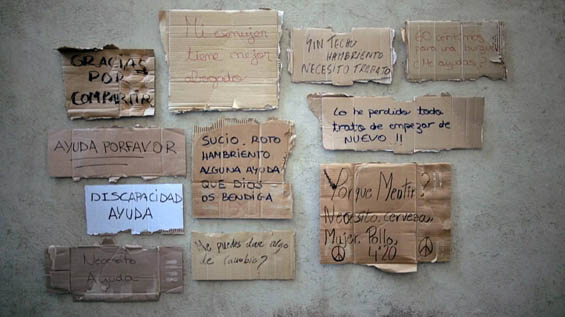 GRACIAS
POR
COMPARTIR
Mi exmujer
tiene mejor
abogado
SIN TECHO
HAMBRIENTO
NECESITO TRABAJO
60 centimos
para una burguer
¿Me ayudas?
Lo he perdido todo
trato de empezar de
NUEVO !!
AYUDA PORFAVOR
SUCIO, ROTO
HAMBRIENTO
ALGUNA AYUDA
QUE DIOS
OS BENDIGA
DISCAPACIDAD
AYUDA
¿Porque Mentir?
Necesito cerveza,
Mujer, Pollo,
4:20
Necesito
Ayuda
Me puedes dar algo
de cambio?